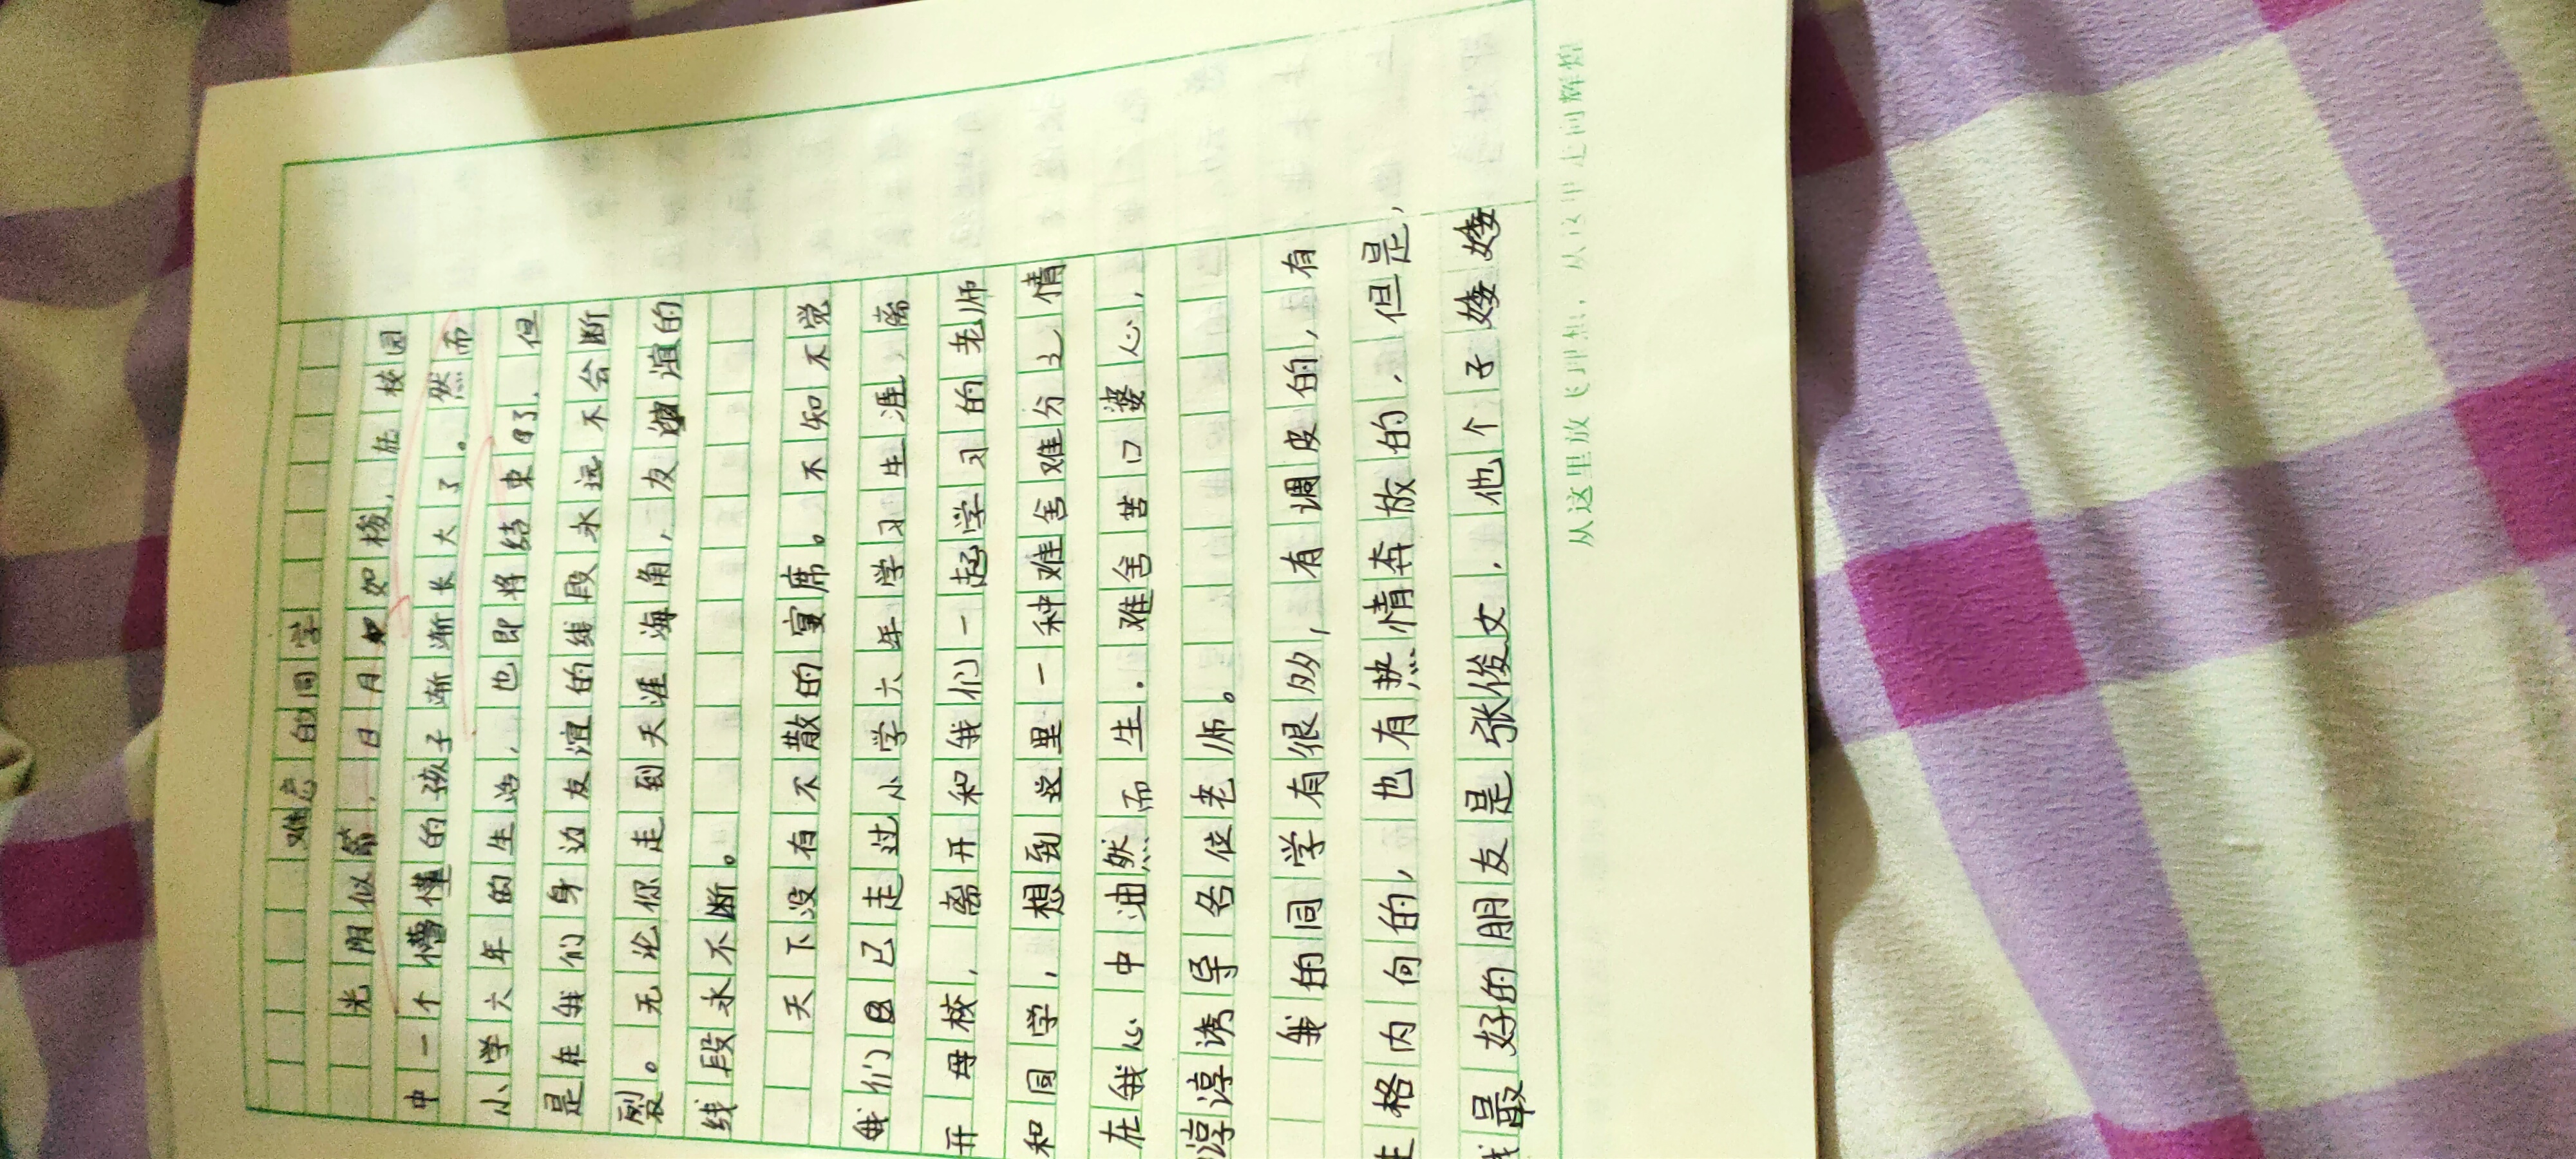 难忘的同学
光阴似箭，日月如梭，在校园
中一个懵懂的孩子渐渐长大了。然而
小学六年的生活，也即将结束了，但
是在我们身边友谊的线段永远不会断
裂。无论你走到天涯海角，友谊的
线段永不断。
天下没有不散的宴席。不知不觉
我们已走过小学六年学习生涯，离
开母校，离开和我们一起学习的老师
和同学，想到这里一种难舍难分之情
在我心中油然而生．难舍苦口婆心，
淳淳诱导各位老师。
我的同学有很多，有调皮的，有
生格内向的，也有热情奔放的．但是，
我最好的朋友是张俊文．他个子矮矮
从这里放飞理想，从这里走向辉煌